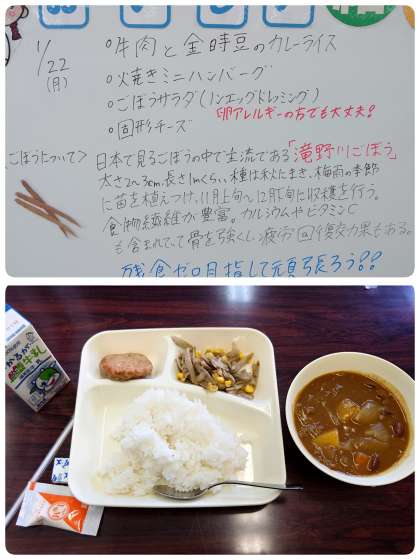 1/22
(月)
○牛肉と金時豆のカレーライス
○火焼きミニハンバーグ
○ごぼうサラダ(ノンエッグドレッシング)
卵アレルギーの方でも大丈夫!
○固形チーズ
〈ごぼうについて〉
日本で見るごぼうの中で主流である「滝野川ごぼう」
太さ2~3cm、長さ1mくらい、種は秋にまき、梅雨の季節
に苗を植えつけ、11月上旬~12月下旬に収穫を行う。
食物繊維が豊富。カルシウムやビタミンC
も含まれていて骨を強くし、疲労回復効果もある。
残食ゼロ目指して頑張ろう??
牛乳